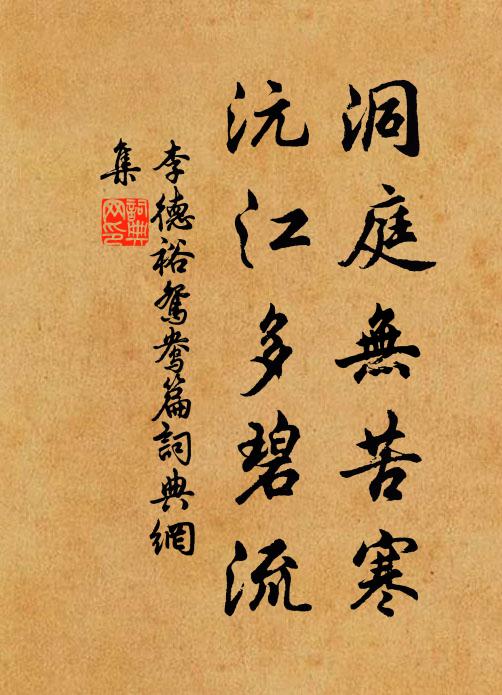 洞庭無苦寒
沅江多碧流
李德裕鴛鴦篇詞典網
集
詞典
网印